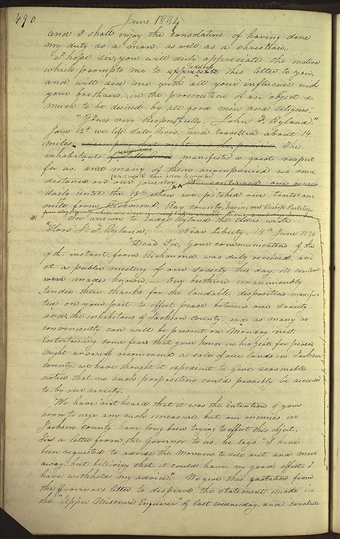 490 June 1834
and I shall enjoy the consolation of having done
my duty as a man as well as a christian.
I hope Sir, you will duly appreciate the motive
which prompts me to address this letter to you,
and will aid me with all your influence with
your brethren, in the prosecution of an object so
much to be desired by all good men and citizens.
"Yours very Respectfully John F. Ryland."
June 12th we left Salt River, and travelled about 14
miles. The
inhabitants manifested a great respect
for us, and many of them accompanied us some
distance on our journey.
daily until the
mile from Richmond, Ray County,
In answer to Judge Ryland the Elders wrote
"John F. Ryland, Near Liberty, 14th June 1834
"Dear Sir, Your communication of the
9th instant, from Richmond was duly received, and
at a public meeting of our society this day, its contents
were made known. Our brethren unanimously
tender their thanks for the laudable disposition manifes-
ted on your part to effect peace between our society
and the inhabitants of Jackson County; and as many as
conveniently can will be present on Monday next.
Entertaining some fears that your honor in his zeal for peace,
might unwarily recommend a sale of our lands in Jackson
County, we have thought it expedient to give seasonable
notice that no such proposition could possibly be acceded
to by our society.
We have not heard that it was the intention of your
honor to urge any such measure, but our enemies in
Jackson County have long been trying to effect this object.
In a letter from the Governor to us, he says "I have
been requested to advise the Mormons to sell out and move
away; but believing that it could have no good effect, I
have withheld my advice." We give this quotation from
the Governor's letter to disprove the statement made in
the "Upper Missouri Enquirer" of last wednesday and conclude